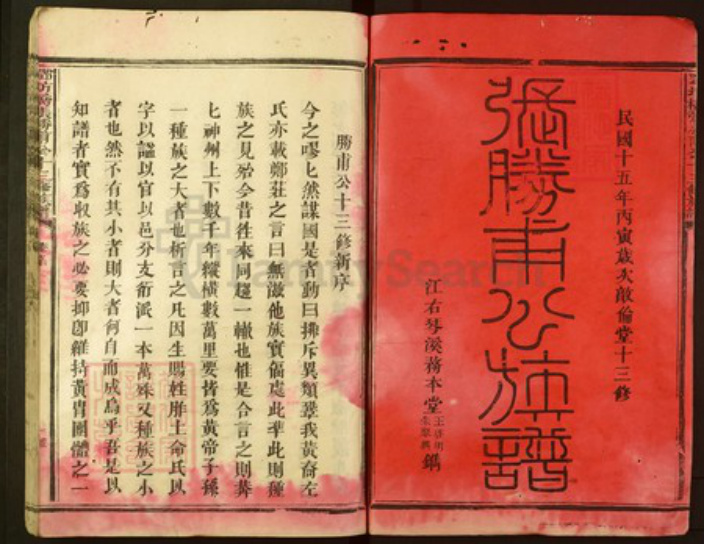 民國十五年丙寅歲次敵倫堂十三修
張勝甫公族譜
江右琴溪務本堂
鐫
勝甫公十三修新序
今之嘐七然謀國是者動曰排斥異類鞏我黃裔左
氏亦載鄭莊之言曰無滋他族實偪處此準此則種
族之見殆今昔往來同趨一轍也惟是合言之則莽
七神州上下數千年縱橫數萬里要皆爲黃帝子孫
一種族之大者也析言之凡因生賜姓胙土命氏以
字以諡以官以邑分支衍派一本萬殊又種族之小
者也然不有其小者則大者何自而成焉乎吾是以
知譜者實爲収族之必要抑卽維持黃胄團體之一
FamilySearch